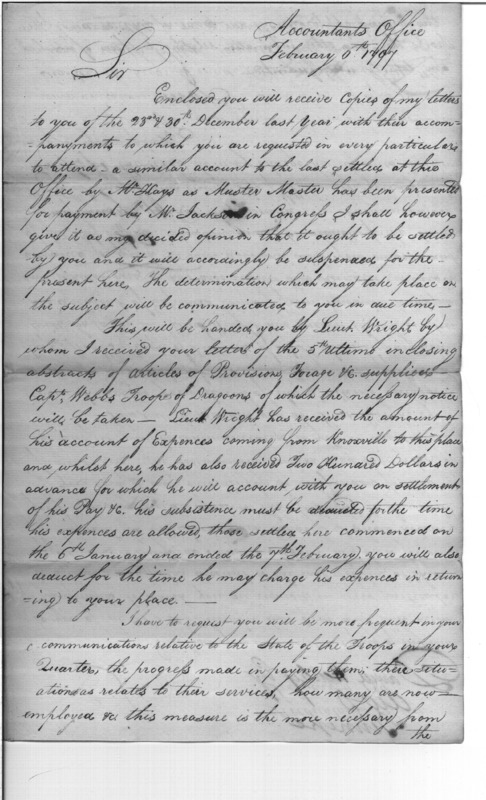 Accountants Office
February 6th 1797
Sir
Enclosed you will receive Copies of my letters
to you of the 23rd & 30th December last Year with their accom=
=panyments to which you are requested in every particular
to attend – a similar account to the last settled at this
Office by Mr Hays as Muster Master has been presented
for payment by Mr Jackson in Congress I shall however
give it as my decided opinion that it ought to be settled
by you and it will accordingly be suspended for the
present here, The determination which may take place on
the subject will be communicated to you in due time –
This will be handed you by Lieut Wright by
whom I received your letter of the 5th Ultimo inclosing
abstracts of Articles of Provisions, Forage &c. supplied
Capt. Webbs Troop of Dragoons of which the necessary notice
will be taken – Lieut Wright has received the amount of
his account of Expences coming from Knoxville to this place
and whilst here, he has also received Two Hundred Dollars in
advance for which he will account with you on settlement
of his Pay &c. his subsistence must be deducted for the time
his expences are allowed, those settled here commenced on
the 6th January and ended the 7th February you will also
deduct for the time he may charge his expences in return
=ing to your place. —
I have to request you will be more frequent in your
communications relative to the State of the Troops in your
Quarter, the progress made in paying them, their situ=
=ation as relates to their services, how many are now
employed &c this measure is the more necessary from
the